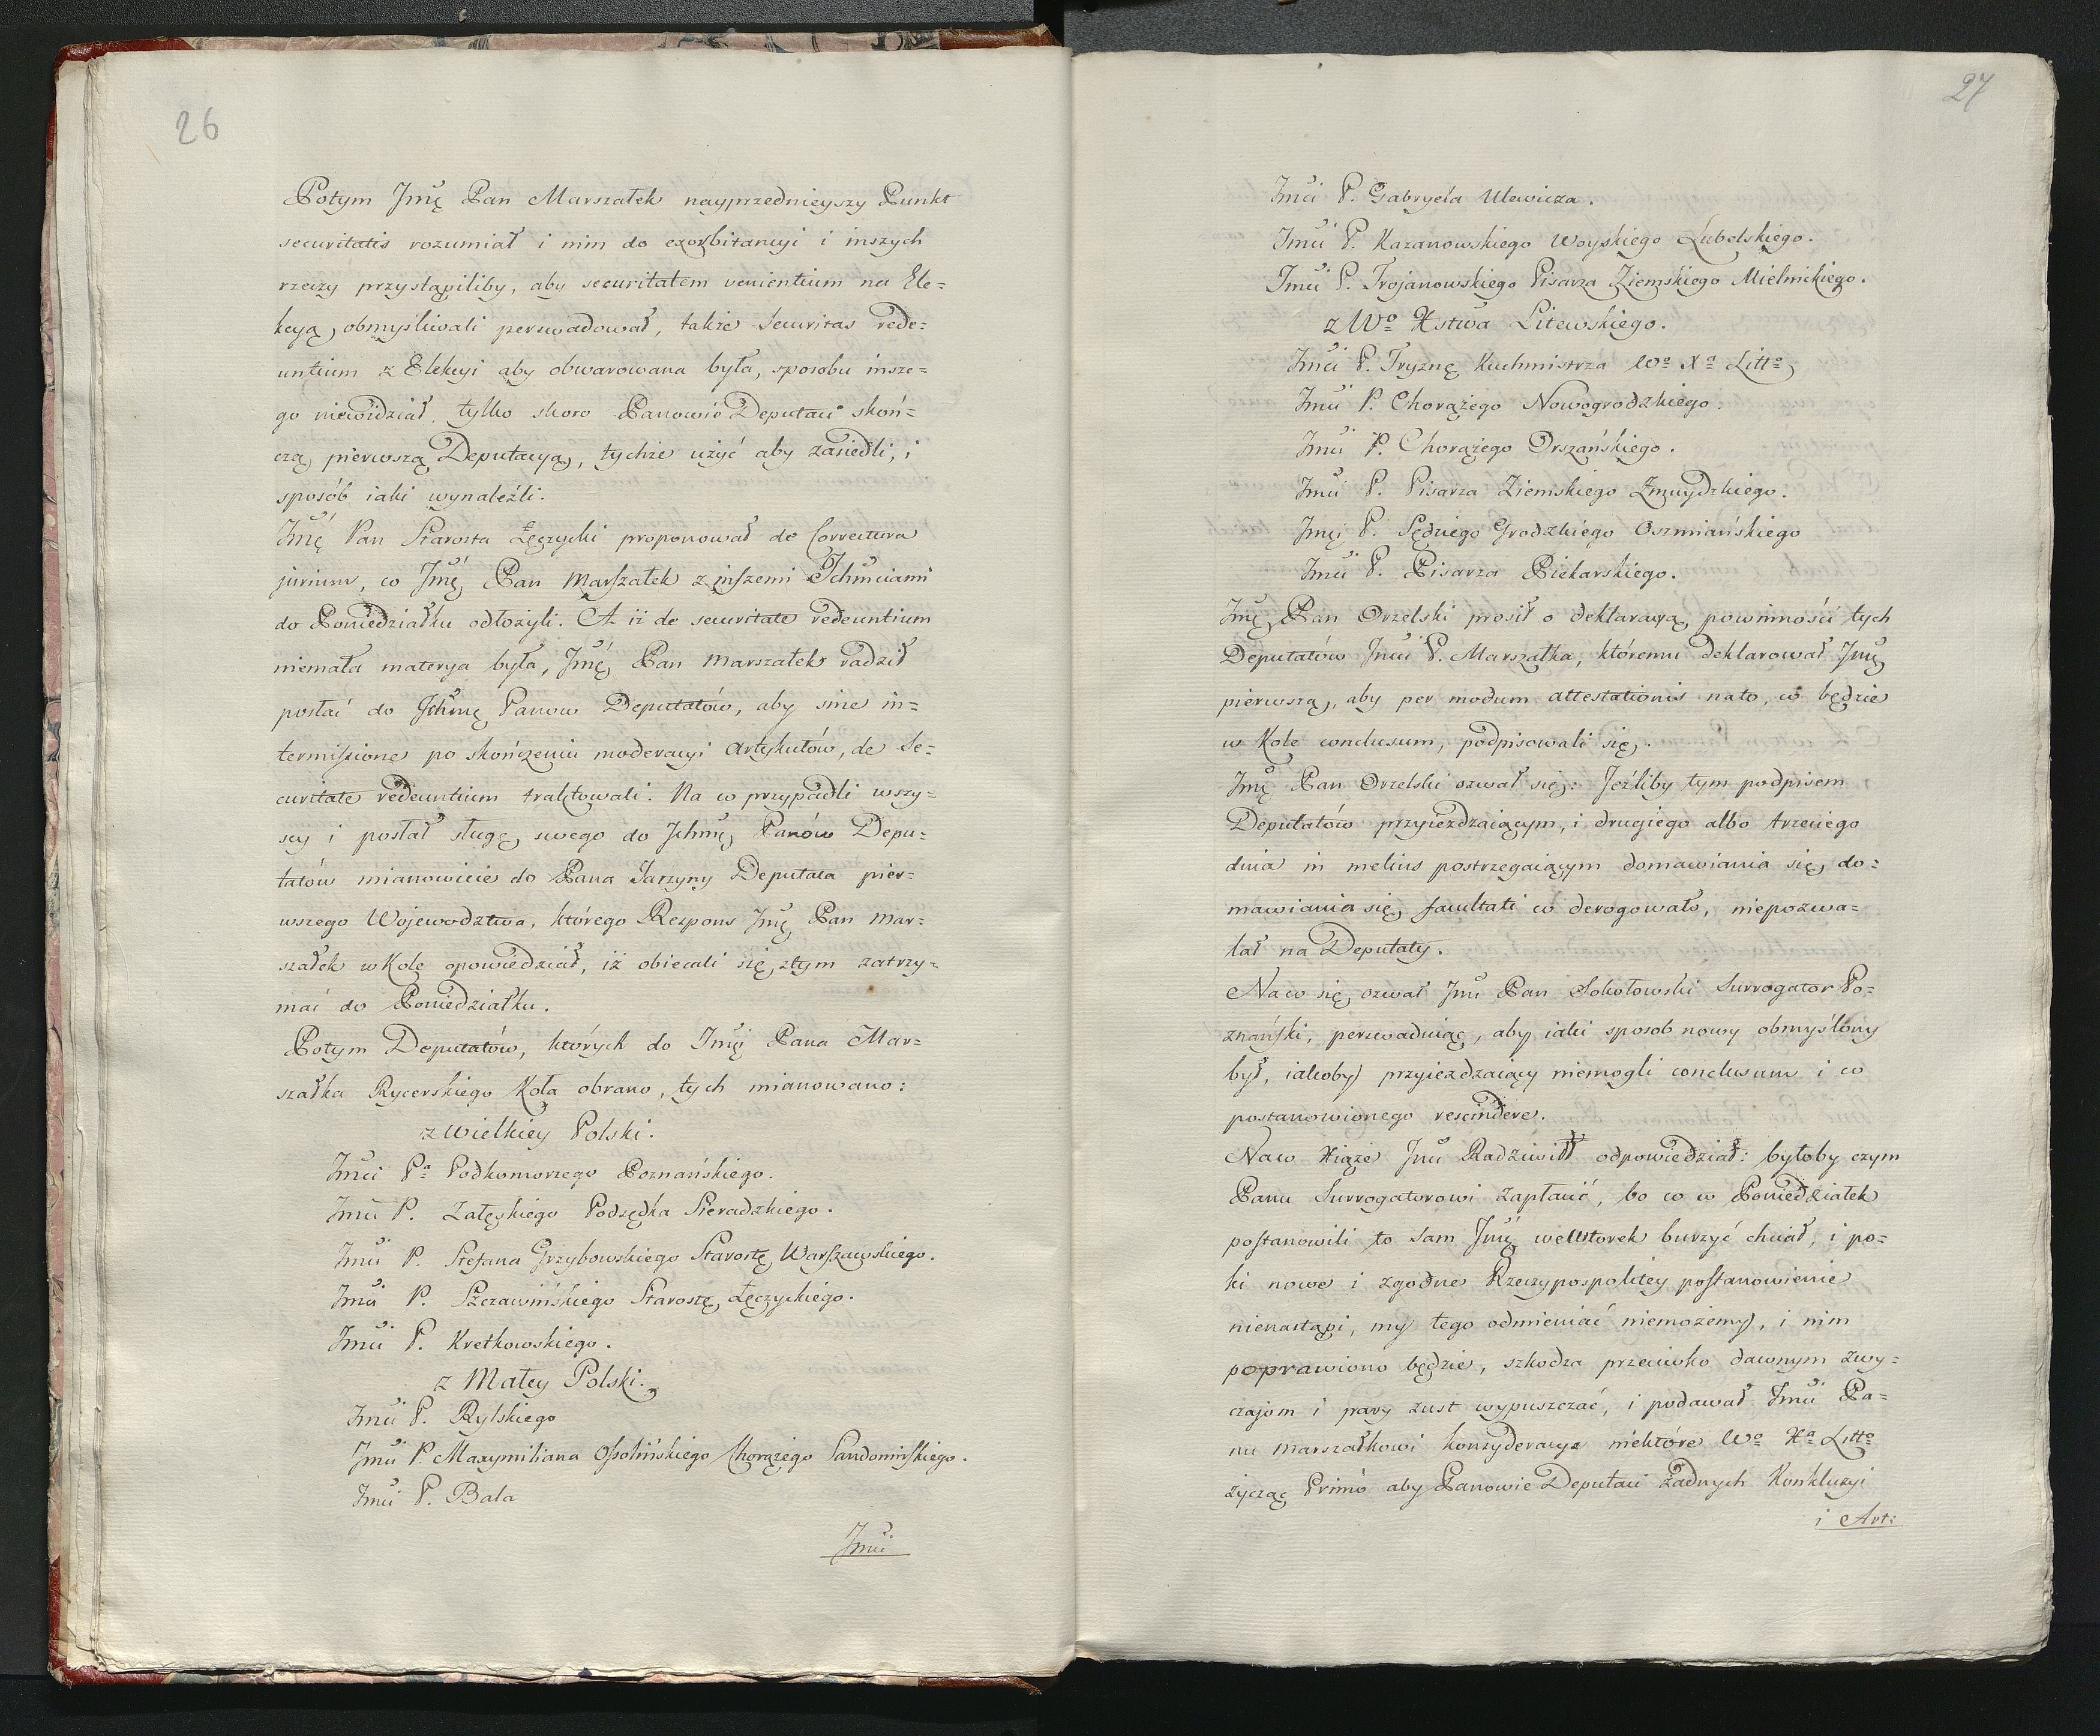 26
Potym Jmę Pan Marszałek nayprzednieyszy Punkt
securitatis rozumiał i nim do exorbitancyi i inszych
rzeczy przystąpiliby, aby securitatem venientium na Ele=
kcyą obmyśliwali perswadował, także Securitas rede=
untium z Elekcyi aby obwarowana była, sposobu insze=
go niewidział, tylko skoro Panowie Deputaci skoń=
czą pierwszą Deputacyą, tychże użyć aby zasiedli, i
sposób iaki wynaleźli.
Jmć Pan Starosta Łęczycki proponował de Correctura
jurium, co Jmć Pan Marszałek z inszemi Ichmciami
do Poniedziałku odłożyli. A iż de securitate redeuntium
niemała materya była, Jmć Pan Marszałek radził
posłać do Ichmę Panow Deputatów, aby sine in=
termissione po skończeniu moderacyi Artykułów, de Se=
curitate redeuntium traktowali. Na co przypadli wszy=
scy i posłał sługę swego do Ichmę Panów Depu=
tatów mianowicie do Pana Jarzyny Deputata pier=
wszego Wojewodztwa, którego Respons Jmę Pan Mar=
szałek w Kole opowiedział, iż obiecali się z tym zatrzy=
mać do Poniedziałku.
Potym Deputatów, których do Jmći Pana Mar=
szałka Rycerskiego Koła obrano, tych mianowano:
z Wielkiey Polski.
Jmći Pa Podkomorzego Poznańskiego.
Jmći P. Załęskiego Podsędka Sieradzkiego.
Jmći P. Stefana Grzybowskiego Starostę Warszawskiego.
Jmći P. Szczawińskiego Starostę Łęczyckiego.
Jmći P. Kretkowskiego.
z Małey Polski.
Jmći P. Rylskiego
Jmći P. Maxymiliana Ossolińskiego Chorążego Sandomirskiego.
Jmći P. Bala
Jmći
27
Jmći P. Gabryela Ulewicza.
Jmći P. Kazanowskiego Woyskiego Lubelskiego.
Jmći P. Trojanowskiego Pisarza Ziemskiego Mielnickiego.
z Wo Xstwa Litewskiego.
Jmći P. Tryznę Kuchmistrza Wo Xa Litto
Jmći P. Chorążego Nowogrodzkiego.
Jmći P. Chorążego Orszańskiego.
Jmći P. Pisarza Ziemskiego Żmuydzkiego.
Jmći P. Sędziego Grodzkiego Oszmiańskiego
Jmći P. Pisarza Piekarskiego.
Jmę Pan Orzelski prosił o deklaracyą powinności tych
Deputatów Jmći P. Marszałka, któremu deklarował Jmę
pierwszą, aby per modum attestationis na to, co będzie
w Kole conclusum, podpisowali się.
Jmę Pan Orzelski ozwał się: Jeźliby tym podpisem
Deputatów przyieżdzaiącym, i drugiego albo trzeciego
dnia in melius postrzegaiącym domawiania się, do=
mawiania się, facultati co derogowało, niepozwa=
lał na Deputaty.
Na co się ozwał Jmć Pan Sokołowski Surrogator Po=
znański, perswaduiąc, aby iaki sposob nowy obmyślony
był, iakoby przyieżdzaiący niemogli conclusum i co
postanowionego rescindere.
Na co Xiąże Jmć Radziwiłł odpowiedział: byłoby czym
Panu Surrogatorowi zapłacić, bo co w Poniedziałek
postanowili to sam Jmć we Wtorek burzyć chciał, i po=
ki nowe i zgodne Rzeczypospolitey postanowienie
nienastąpi, my tego odmieniać niemożemy, i nim
poprawiono będzie, szkodza przeciwko dawnym zwy=
czajom i pary z ust wypuszczać, i podawał Jmći Pa=
nu Marszałkowi konsyderacye niektóre Wo Xa Litto
życząc Primó aby Panowie Deputaci żadnych Konkluzyi
i Art: